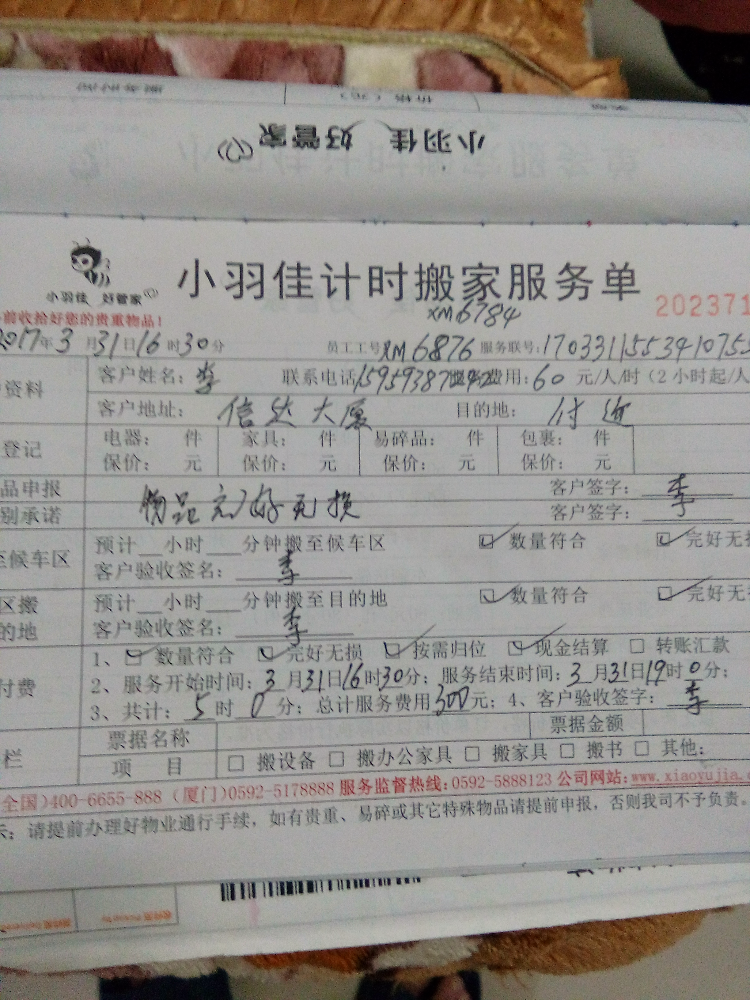 小羽佳 好管家
小羽佳 好管家
小羽佳计时搬家服务单
XM6784
202371
前收拾好您的贵重物品!
2017年3月31日16时30分 员工工号XM6876 服务联号:170331155341075
资料 客户姓名:李 联系电话 费用:60元/人/时(2小时起/人
客户地址:信达大厦 目的地:付近
登记 电器: 件 家具: 件 易碎品: 件 包裹: 件
保价: 元 保价: 元 保价: 元 保价: 元
品申报 物品完好无损 客户签字:李
别承诺 客户签字:李
至候车区 预计__小时___分钟搬至候车区 ☑数量符合 ☑完好无损
客户验收签名:李
区搬 预计__小时___分钟搬至目的地 ☑数量符合 ☑完好无
的地 客户验收签名:李
1、☑数量符合 ☑完好无损 ☑按需归位 ☑现金结算 □转账汇款
付费 2、服务开始时间:3月31日16时30分;服务结束时间:3月31日19时0分;
3、共计:5时0分;总计服务费用300元;4、客户验收签字:李
栏 票据名称 票据金额
项 目 □搬设备 □搬办公家具 □搬家具 □搬书 □其他:
全国)400-6655-888 (厦门)0592-5178888 服务监督热线:0592-5888123 公司网站:www.xiaoyujia.
示:请提前办理好物业通行手续,如有贵重、易碎或其它特殊物品请提前申报,否则我司不予负责。